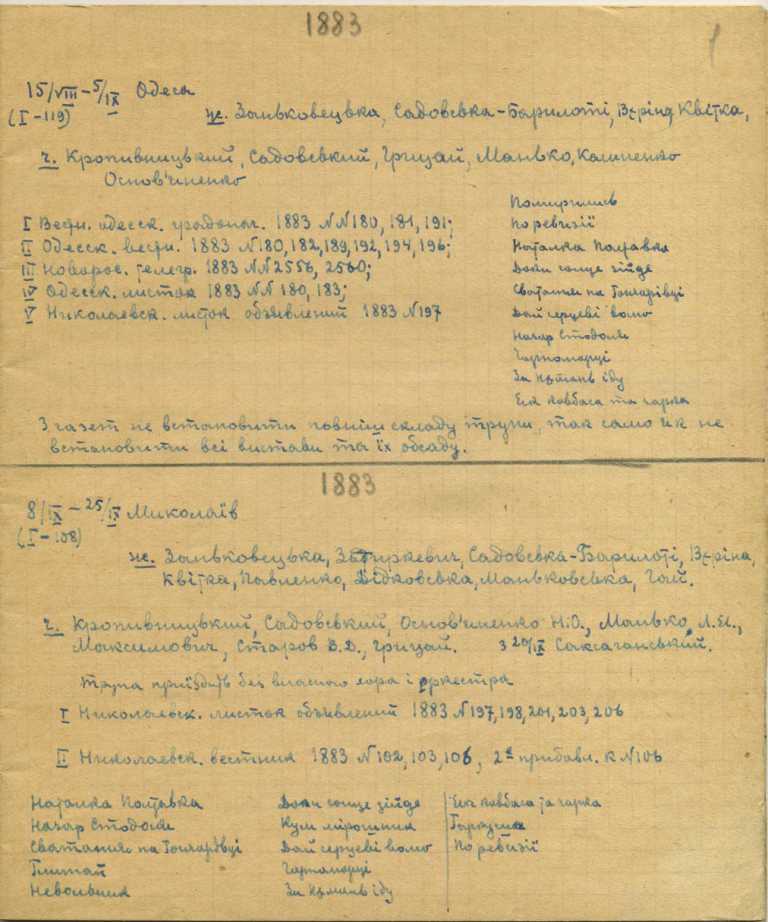 1883
1
15/VIII – 5/IX Одеса
(I – 119)
ж. Заньковецька, Садовська-Барилоті, Вєріна, Квітка,
ч. Кропивницький, Садовський, Грицай, Манько, Калиненко
Основ'яненко
Помирились
I Ведм. одесск. градонач. 1883 NN 180, 181, 191;
По ревизії
II Одесск. вестн. 1883 N 180, 182, 189, 192, 194, 196;
Наталка Полтавка
III Новорос. телегр. 1883 NN 2556, 2560;
Доки сонце зійде
IV Одесск. листок 1883 NN 180, 183;
Сватання на Гончарівці
V Николаевск. листок объявлений 1883 N 197
Дай серцеві волю
Назар Стодоля
Чорноморці
За Нємань іду
Як ковбаса та чарка
З газет не встановити повніш складу трупи, так само як не
встановити всі вистави та їх обсаду.
1883
8/IX – 25/IX Миколаїв
(I – 108)
ж. Заньковецька, Затиркевич, Садовська-Барилоті, Вєріна,
Квітка, Павленко, Дідковська, Маньковська, Гай.
ч. Кропивницький, Садовський, Основ'яненко Н.О., Манько Л.
Максимович, Старов В.Д., Грицай. з 20/IX Саксаганський.
Трупа приїздить без власного хора і оркестра
I Николаевск. листок объявлений 1883 N 197, 198, 201, 203, 206
II Николаевск. вестник 1883 N 102, 103, 106, 2е прибавл. к N 106
Наталка Полтавка
Доки сонце зійде
Як ковбаса та чарка
Назар Стодоля
Кум мірошник
Гаркуша
Сватання на Гончарівці
Дай серцеві волю
По ревизії
Глитай
Чорноморці
Невольник
За Нємань іду